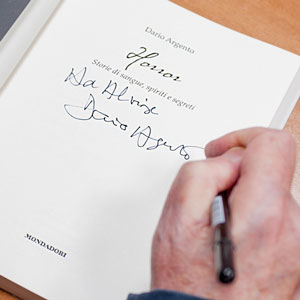 Dario Argento
Horror
Storie di sangue, spiriti e segreti
Ad Alvise
Dario Argento
MONDADORI